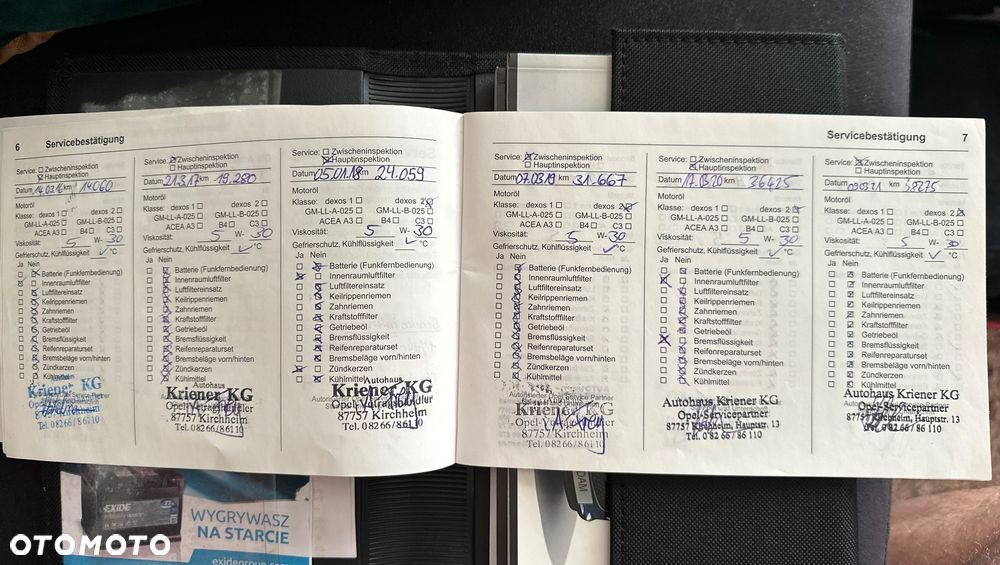 6 Servicebestätigung
Service: Zwischeninspektion
Hauptinspektion
Datum 14.03.16 km 14060
Motoröl
Klasse: dexos 1 dexos 2
GM-LL-A-025 GM-LL-B-025
ACEA A3 B4 C3
Viskosität: 5 W- 30
Gefrierschutz, Kühlflüssigkeit °C
Ja Nein
Batterie (Funkfernbedienung)
Innenraumluftfilter
Luftfiltereinsatz
Keilrippenriemen
Zahnriemen
Kraftstofffilter
Getriebeöl
Bremsflüssigkeit
Reifenreparaturset
Bremsbeläge vorn/hinten
Zündkerzen
Kühlmittel
Kriener KG
Tel. 08266/86110
Service: Zwischeninspektion
Hauptinspektion
Datum 21.3.17 km 19.280
Motoröl
Klasse: dexos 1 dexos 2
GM-LL-A-025 GM-LL-B-025
ACEA A3 B4 C3
Viskosität: 5 W- 30
Gefrierschutz, Kühlflüssigkeit °C
Ja Nein
Batterie (Funkfernbedienung)
Innenraumluftfilter
Luftfiltereinsatz
Keilrippenriemen
Zahnriemen
Kraftstofffilter
Getriebeöl
Bremsflüssigkeit
Reifenreparaturset
Bremsbeläge vorn/hinten
Zündkerzen
Kühlmittel
Autohaus
Kriener KG
Opel-Vertragshändler
87757 Kirchheim
Tel. 08266/86110
Service: Zwischeninspektion
Hauptinspektion
Datum 05.01.18 km 24.059
Motoröl
Klasse: dexos 1 dexos 2
GM-LL-A-025 GM-LL-B-025
ACEA A3 B4 C3
Viskosität: 5 W- 30
Gefrierschutz, Kühlflüssigkeit °C
Ja Nein
Batterie (Funkfernbedienung)
Innenraumluftfilter
Luftfiltereinsatz
Keilrippenriemen
Zahnriemen
Kraftstofffilter
Getriebeöl
Bremsflüssigkeit
Reifenreparaturset
Bremsbeläge vorn/hinten
Zündkerzen
Kühlmittel
Autohaus
Kriener KG
87757 Kirchheim
Tel. 08266/86110
Servicebestätigung 7
Service: Zwischeninspektion
Hauptinspektion
Datum 07.03.19 km 31.667
Motoröl
Klasse: dexos 1 dexos 2
GM-LL-A-025 GM-LL-B-025
ACEA A3 B4 C3
Viskosität: 5 W- 30
Gefrierschutz, Kühlflüssigkeit °C
Ja Nein
Batterie (Funkfernbedienung)
Innenraumluftfilter
Luftfiltereinsatz
Keilrippenriemen
Zahnriemen
Kraftstofffilter
Getriebeöl
Bremsflüssigkeit
Reifenreparaturset
Bremsbeläge vorn/hinten
Zündkerzen
Kühlmittel
Autorisierter Opel Service Partner
Kriener KG
87757 Kirchheim
Tel. 08266/86110
Service: Zwischeninspektion
Hauptinspektion
Datum km 36425
Motoröl
Klasse: dexos 1 dexos 2
GM-LL-A-025 GM-LL-B-025
ACEA A3 B4 C3
Viskosität: 5 W- 30
Gefrierschutz, Kühlflüssigkeit °C
Ja Nein
Batterie (Funkfernbedienung)
Innenraumluftfilter
Luftfiltereinsatz
Keilrippenriemen
Zahnriemen
Kraftstofffilter
Getriebeöl
Bremsflüssigkeit
Reifenreparaturset
Bremsbeläge vorn/hinten
Zündkerzen
Kühlmittel
Autohaus Kriener KG
Opel-Servicepartner
87757 Kirchheim, Hauptstr. 13
Tel. 0 82 66 / 86 110
Service: Zwischeninspektion
Hauptinspektion
Datum km
Motoröl
Klasse: dexos 1 dexos 2
GM-LL-A-025 GM-LL-B-025
ACEA A3 B4 C3
Viskosität: 5 W- 30
Gefrierschutz, Kühlflüssigkeit °C
Ja Nein
Batterie (Funkfernbedienung)
Innenraumluftfilter
Luftfiltereinsatz
Keilrippenriemen
Zahnriemen
Kraftstofffilter
Getriebeöl
Bremsflüssigkeit
Reifenreparaturset
Bremsbeläge vorn/hinten
Zündkerzen
Kühlmittel
Autohaus Kriener KG
Opel-Servicepartner
87757 Kirchheim, Hauptstr. 13
Tel. 0 82 66 / 86 110
EXIDE
WYGRYWASZ
NA STARCIE
ADAM
OTOMOTO